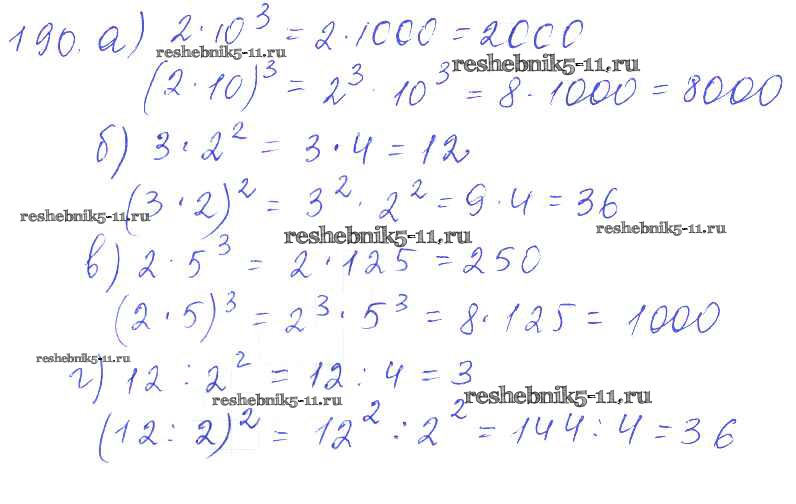 190. а) 2·10³ = 2·1000 = 2000
reshebnik5-11.ru
reshebnik5-11.ru
(2·10)³ = 2³·10³ = 8·1000 = 8000
б) 3·2² = 3·4 = 12
(3·2)² = 3²·2² = 9·4 = 36
reshebnik5-11.ru
reshebnik5-11.ru
reshebnik5-11.ru
в) 2·5³ = 2·125 = 250
(2·5)³ = 2³·5³ = 8·125 = 1000
reshebnik5-11.ru
г) 12 : 2² = 12 : 4 = 3
reshebnik5-11.ru
reshebnik5-11.ru
(12 : 2)² = 12² : 2² = 144 : 4 = 36